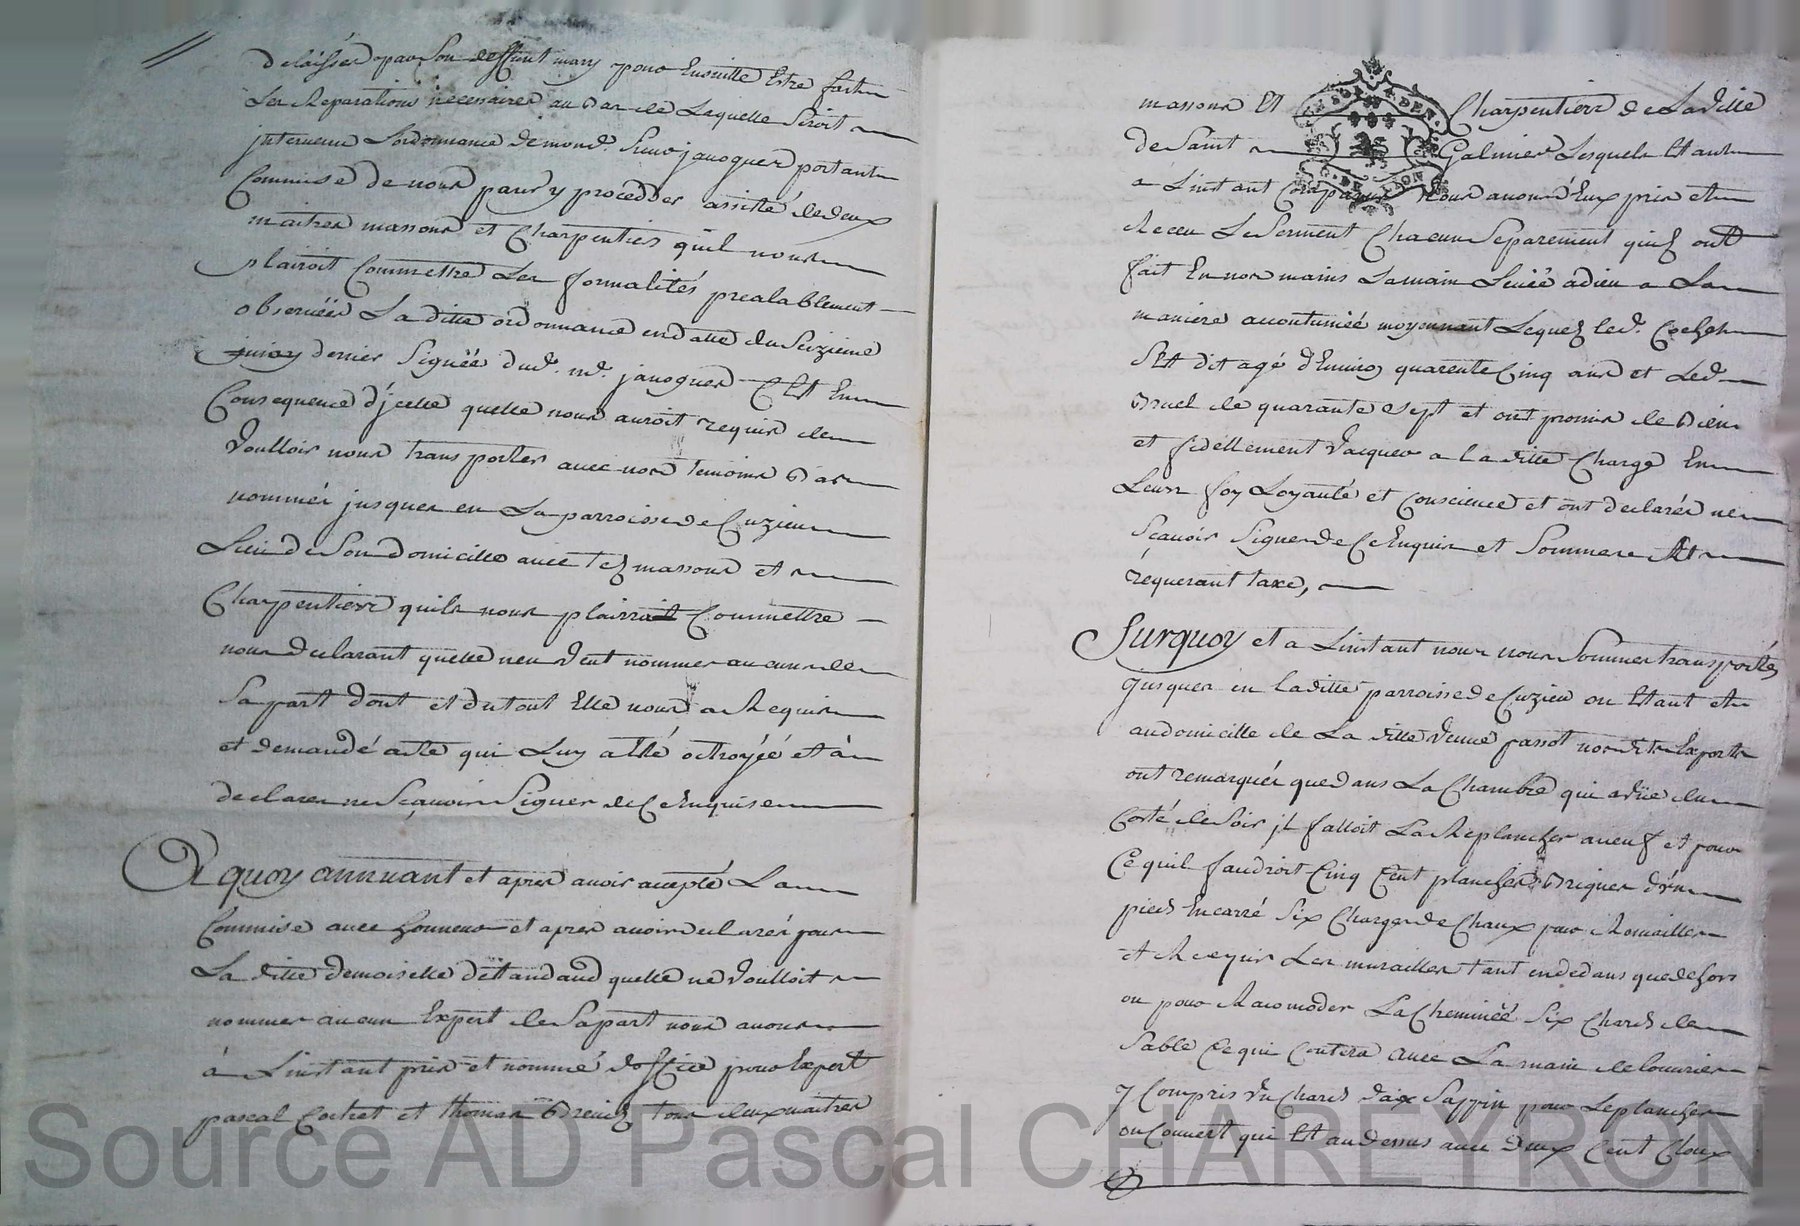 delaissés par Son deffunt mary pour Ensuitte Estre fait
Les Reparations necessaires au bas de Laquelle Seroit
jntervenu Lordonnance de mond. Sieur janoguer portant
Commise de nous pour y proceder assisté de deux
maitres massons et Charpentiers quil nous
plairoit Commettre Les formalités prealablement
observéés La ditte ordonnance en datte du Seizieme
dernier Signéé dud. mr. janoguer Et En
Consequence d'jcelle quelle nous auroit requis de
Voulloir nous transporter avec nos temoins bas
nommés jusques en La parroisse de Cuzieu
Lieu de Son domicille avec tels massons et
Charpentiers quils nous plairroit Commettre
nous declarant quelle neu Veut nommer aucun de
Sa part dont et du tout Elle nous a Requis
et demandé acte qui Luy a Eté octroyéé et à
declarer ne Sçavoir Signer de Ce Enquise
A quoy annuant et apres avoir accepté La
Commise avec honneur et apres avoir declarés par
La ditte demoiselle quelle ne Voulloit
nommer aucun Expert de Sa part nous avons
à Linstant pris et nommé doffice pour Expert
pascal et thomas tous deux maitres
massons Et Charpentiers de La Ville
de Saint Galmier Lesquels Etant
a Linstant Comparus Nous avons d'Eux pris et
Receu Le Serment Chacun Separement quils ont
fait En nos mains La main Levéé a dieu a La
maniere accoutuméé moyennant Lequel led.
S'Est dit agé d'Environ quarente Cinq ans et Led.
de quarante Sept et ont promis de bien
et fidellement Vacquer a la ditte Charge En
Leurs foy Loyauté et Conscience et ont declarés ne
Sçavoir Signer de Ce Enquis et Sommere Et
requerant taxe,
Surquoy et a Linstant nous nous Sommes transportés
jusques en la ditte parroisse de Cuzieu ou Etant et
au domicille de La ditte Veuve passot nosdits Experts
ont remarqués que dans La Chambre qui a Vüe du
Costé de Soir jl falloit La Replancher a neuf et pour
Ce quil faudroit Cinq Cent planchers briques d'un
pied En carré Six Charges de Chaux pour
et Recrepir Les murailles tant en dedans que dehors
ou pour Racomoder La Cheminéé Six Chards de
Sable Ce qui Coutera avec La main de louvrier
y Compris Un Chard d'aix Sappin pour Le plancher
ou Couvert qui Est au dessus avec deux Cent Cloux
Source AD Pascal CHAREYRON